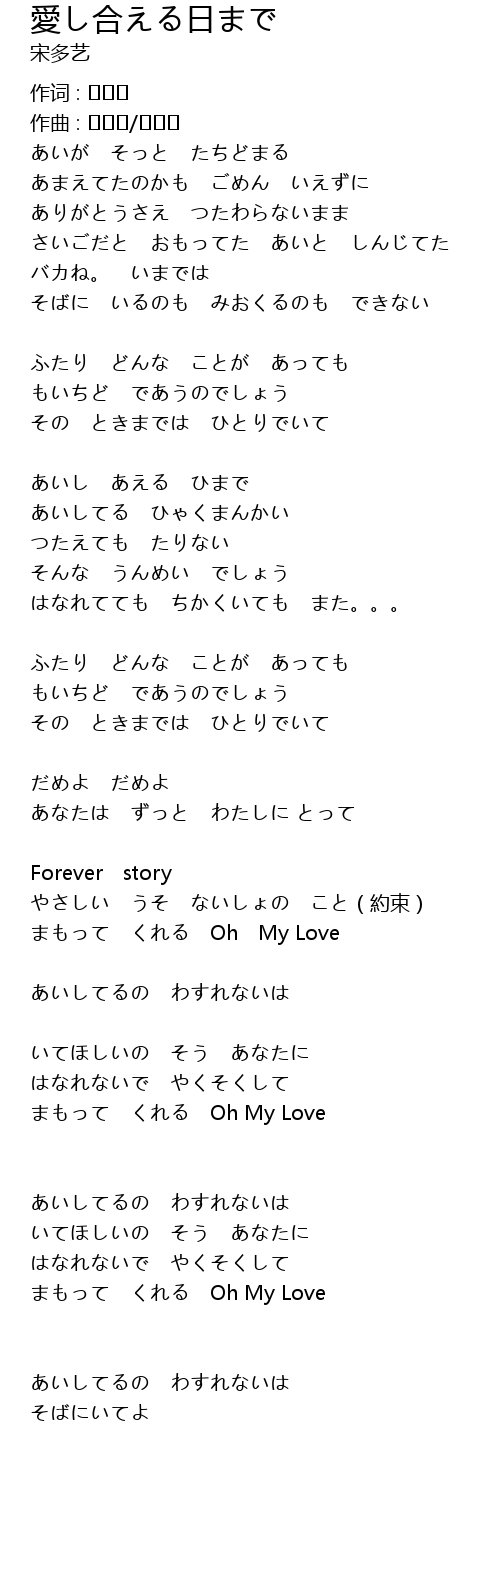 愛し合える日まで
宋多艺
作词 : □□□
作曲 : □□□/□□□
あいが　そっと　たちどまる
あまえてたのかも　ごめん　いえずに
ありがとうさえ　つたわらないまま
さいごだと　おもってた　あいと　しんじてた
バカね。　いまでは
そばに　いるのも　みおくるのも　できない
ふたり　どんな　ことが　あっても
もいちど　であうのでしょう
その　ときまでは　ひとりでいて
あいし　あえる　ひまで
あいしてる　ひゃくまんかい
つたえても　たりない
そんな　うんめい　でしょう
はなれてても　ちかくいても　また。。。
ふたり　どんな　ことが　あっても
もいちど　であうのでしょう
その　ときまでは　ひとりでいて
だめよ　だめよ
あなたは　ずっと　わたしに とって
Forever　story
やさしい　うそ　ないしょの　こと ( 約束 )
まもって　くれる　Oh　My Love
あいしてるの　わすれないは
いてほしいの　そう　あなたに
はなれないで　やくそくして
まもって　くれる　Oh My Love
あいしてるの　わすれないは
いてほしいの　そう　あなたに
はなれないで　やくそくして
まもって　くれる　Oh My Love
あいしてるの　わすれないは
そばにいてよ